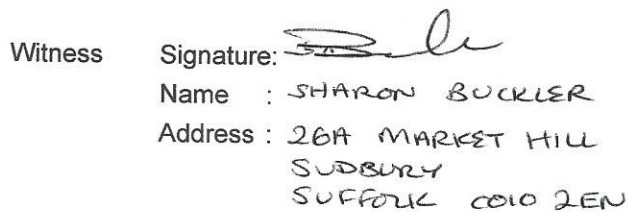 Witness Signature:
Name : SHARON BUCKLER
Address : 26A MARKET HILL
SUDBURY
SUFFOLK CO10 2EN